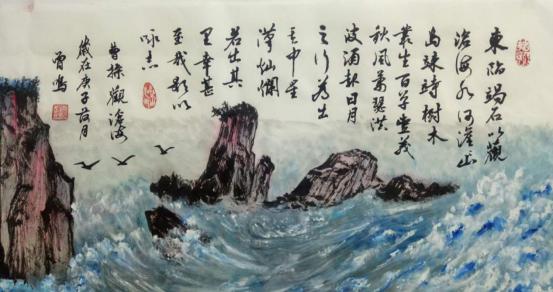 東临碣石以觀
沧海水何澹澹山
岛竦峙樹木
叢生百草豐茂
秋風萧瑟洪
波涌起日月
之行若出
其中星
漢灿爛
若出其
里幸甚
至哉歌以
咏志
曹操觀滄海
歲在庚子月